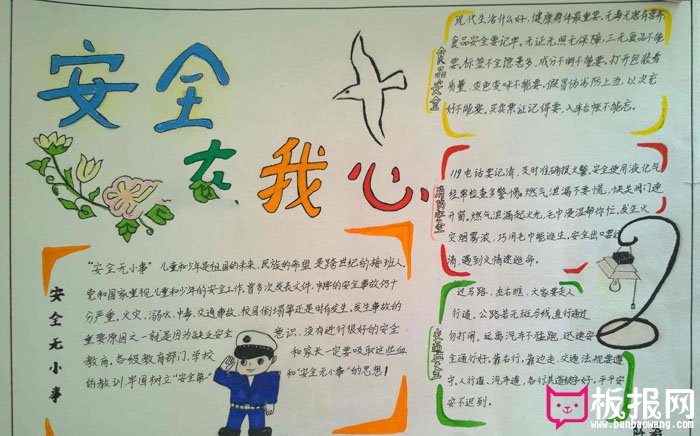 安全
在我心
安全无小事
"安全无小事"儿童和少年是祖国的未来,民族的希望是跨世纪的接班人,
党和国家重视儿童和少年的安全工作,曾多次发表文件.中牌的安全事故仍十
分严重,火灾、溺水、中毒、交通事故、校园倒塌等还是时有发生,发生事故的
重要原因之一就是因为缺乏安全意识,没有进行很好的安全
教育,各级教育部门,学校和家长一定要吸取这些血
的教训,牢固树立"安全第一"和"安全无小事"的思想!
食品安全
现代生活什么好,健康群体最重要,无毒无害有营养,
食品安全要记牢。无证无照无保障,三无食品不能
要。标签不全隐患多,成分不明不能要。打开包装看
质量,变色变味不能要。假冒伪劣防上边,以次充
好不能要。买卖票证记得要,入库台帐不能忘。
消防安全
119电话要记清,及时准确报火警,安全使用液化气
经常检查多警惕。燃气泄漏不要慌,快关阀门速
开窗。燃气泄漏起火光,毛巾浸湿帮你忙,发生火
灾烟雾浓,巧用毛巾能逃生。安全出口要记
清,遇到火情速逃命。
交通安全
过马路,左右瞧,大家要走人
行道。公路若无斑马线,直行通过
勿打闹。远离汽车不猛跑,迅速安
全通行好。靠右行,靠边走,交通法规要遵
守。人行道,汽车道,各行其道秩序好。平平安
安不迟到。
板报网
www.banbaowang.com